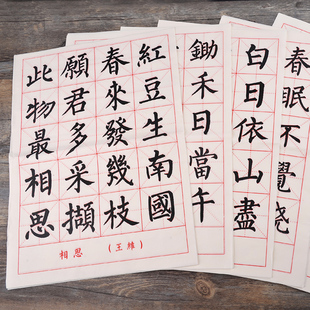 紅豆生南國
春來發幾枝
願君多采擷
此物最相思
相思 (王維)
鋤禾日當午
白日依山盡
春眠不覺曉